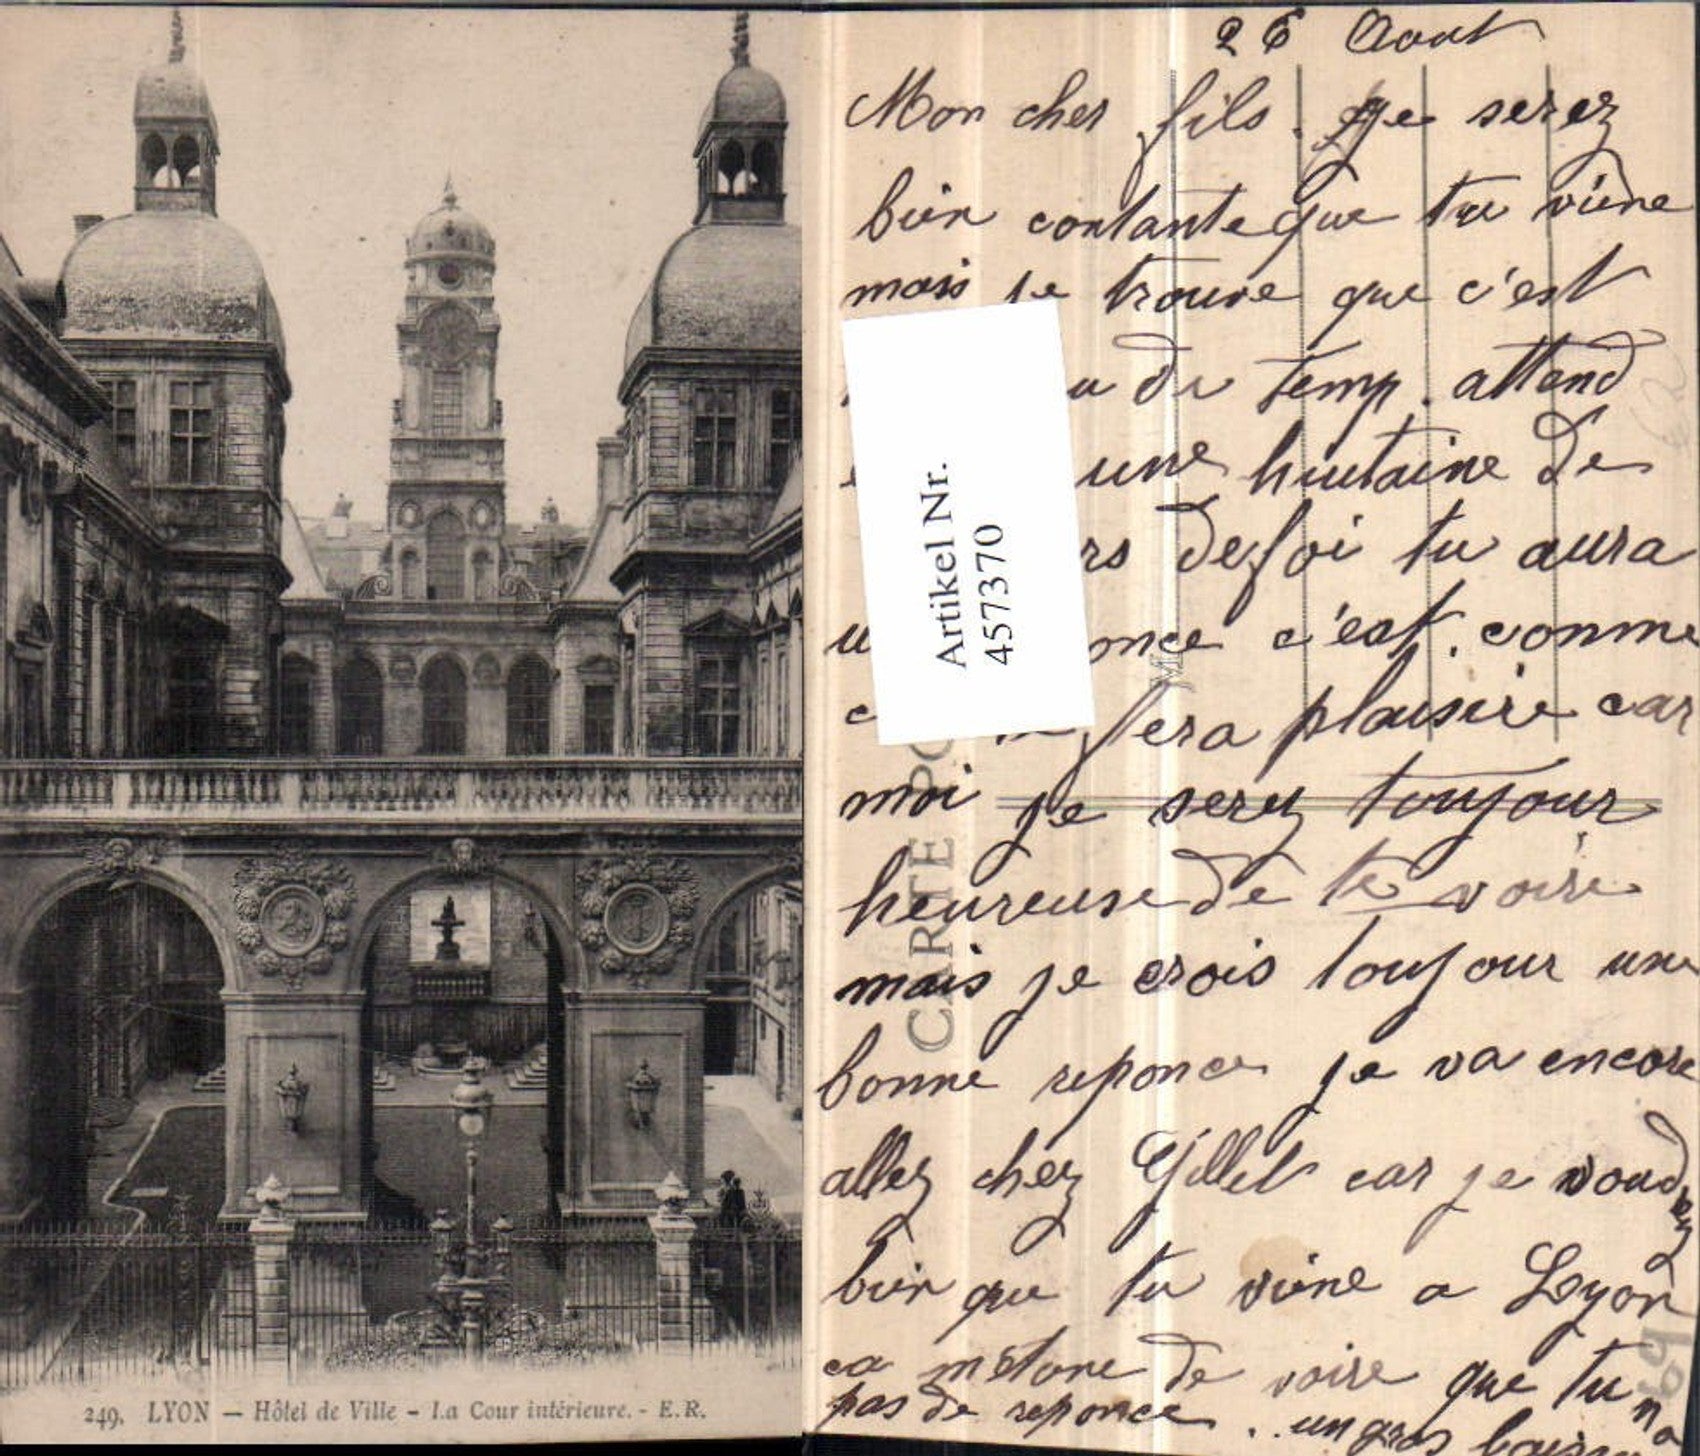 249. LYON — Hôtel de Ville - La Cour intérieure. - E.R.
26 Aout
Mon cher fils. je serez
bien contante que tu viène
mais je trouve que c'est
u de temp. attend
une huitaine de
rs defoi tu aura
u once c'est. comme
c fera plaisire car
moi je serez toujour
heureuse de te voire
mais je crois toujour une
bonne reponce je va encore
allez chez Gillet car je voudrez
bien que tu viène a Lyon
ca métone de voire que tu na
pas de reponce .. un gros
Artikel Nr.
457370
CARTE PO